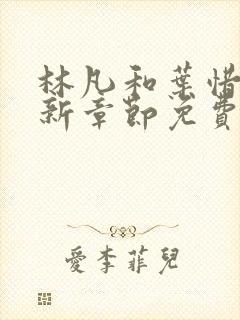 林凡和葉惜
新章節免費
愛李菲兒